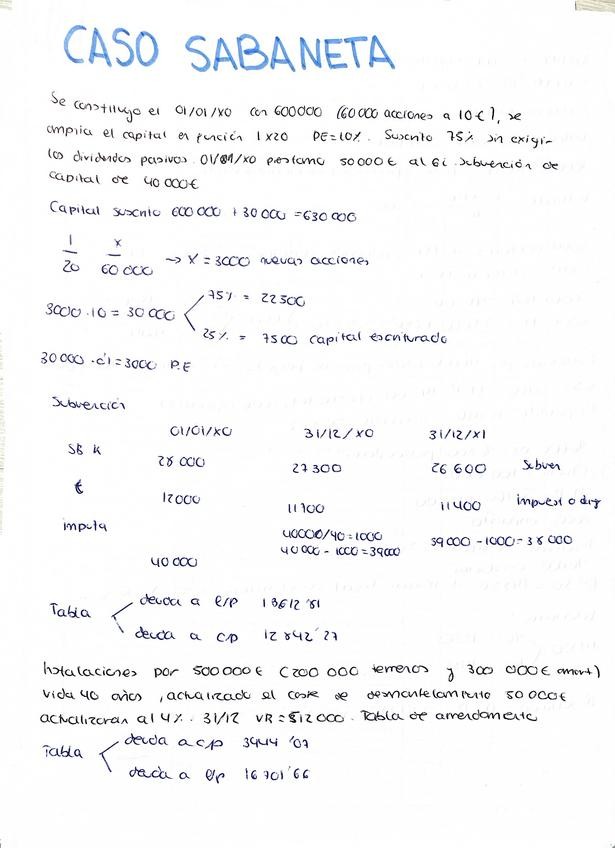 CASO SABANETA
Se constituyo el 01/01/X0 con 600000 (60000 acciones a 10€), se
amplia el capital en función 1x20 PE=10%. Suscrito 75% sin exigir
los dividendos pasivos. 01/01/X0 prestamo 50000€ al 6%. Subvención de
capital de 40000€
Capital suscrito 600 000 + 30 000 = 630 000
1 x
20 60 000 → X = 3000 nuevas acciones
75% = 22500
3000 . 10 = 30 000
25% = 7500 capital escriturado
30 000 . 0'1 = 3000 P.E
Subvención
01/01/X0 31/12/X0 31/12/X1
SB K 28 000 27 300 26 600 Subven
t 12000 11700 11400 impuest o dif
imputa 40000/40 = 1000
40 000 - 1000 = 39000 39 000 - 1000 = 38 000
40 000
deuda a l/p 13612'81
Tabla
deuda a c/p 12842'27
Instalaciones por 500 000€ (200 000 terrenos y 300 000€ amort)
vida 40 años, actualizado el coste de desmantelamiento 50 000€
actualizaran al 4%. 31/12 VR = 512 000. Tabla de arrendamiento
deuda a c/p 3444'07
Tabla
deuda a l/p 16701'66